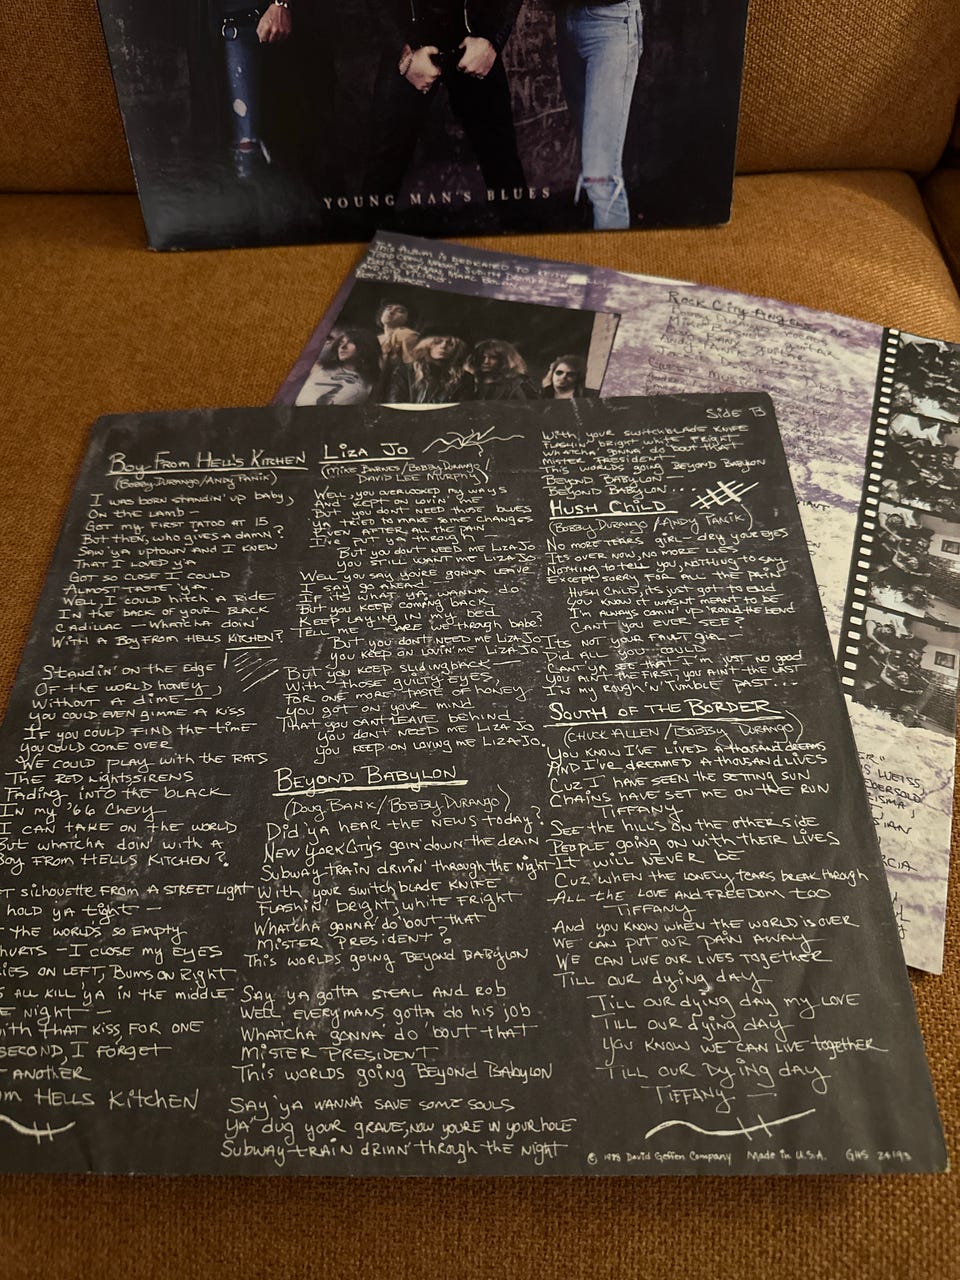 YOUNG MAN'S BLUES
THIS ALBUM IS DEDICATED TO KEITH
ROCK CITY ANGELS
BOBBY DURANGO
MIKE BARNES GUITAR
GUITAR
ANDY PANIK BASS
Side B
BOY FROM HELL'S KITCHEN
(BOBBY DURANGO/ANDY PANIK)
I WAS BORN STANDIN' UP BABY,
ON THE LAMB —
GOT MY FIRST TATOO AT 15
BUT THEN, WHO GIVES A DAMN?
SAW YA UPTOWN AND I KNEW
THAT I LOVED Y'A
GOT SO CLOSE I COULD
ALMOST TASTE YA
WELL I COULD HITCH A RIDE
IN THE BACK OF YOUR BLACK
CADILLAC — WHATCHA DOIN'
WITH A BOY FROM HELLS KITCHEN?
STANDIN' ON THE EDGE
OF THE WORLD HONEY,
WITHOUT A DIME —
YOU COULD EVEN GIMME A KISS
IF YOU COULD FIND THE TIME
YOU COULD COME OVER
WE COULD PLAY WITH THE RATS
THE RED LIGHTS SIRENS
FADING INTO THE BLACK
IN MY '66 CHEVY
I CAN TAKE ON THE WORLD
BUT WHATCHA DOIN' WITH A
BOY FROM HELLS KITCHEN?
SILHOUETTE FROM A STREET LIGHT
HOLD YA TIGHT —
THE WORLDS SO EMPTY
HURTS — I CLOSE MY EYES
ON LEFT, BUMS ON RIGHT
ALL KILL 'YA IN THE MIDDLE
NIGHT —
WITH THAT KISS, FOR ONE
SECOND, I FORGET
ANOTHER
HELLS KITCHEN
LIZA JO
(MIKE BARNES/BOBBY DURANGO/
DAVID LEE MURPHY)
WELL, YOU OVERLOOKED MY WAYS
AND KEPT ON LOVIN' ME
BUT I DON'T NEED THOSE BLUES
YA TRIED TO MAKE SOME CHANGES
EVEN AFTER ALL THE PAIN
I'VE PUT YA THROUGH —
BUT YOU DONT NEED ME LIZA JO
YOU STILL WANT ME LIZA JO
WELL YOU SAY YOU'RE GONNA LEAVE
I SAY GO AHEAD
IF ITS WHAT YA, WANNA DO
BUT YOU KEEP COMING BACK
KEEP LAYING IN MY BED
TELL ME — ARE WE THROUGH BABE?
BUT YOU DON'T NEED ME LIZA JO
YOU KEEP ON LOVIN' ME LIZA JO
BUT YOU KEEP SLIDING BACK —
WITH THOSE GUILTY EYES,
FOR ONE MORE TASTE OF HONEY
YOU GOT ON YOUR MIND
THAT YOU CAN'T LEAVE BEHIND
YOU DON'T NEED ME LIZA JO
YOU KEEP ON LOVING ME LIZA JO.
BEYOND BABYLON
(DOUG BANX/BOBBY DURANGO)
DID YA HEAR THE NEWS TODAY?
NEW YORK CITYS GOIN' DOWN THE DRAIN
SUBWAY-TRAIN DRIVIN' THROUGH THE NIGHT
WITH YOUR SWITCH BLADE KNIFE
FLASHIN' BRIGHT, WHITE FRIGHT
WHATCHA GONNA DO 'BOUT THAT
MISTER PRESIDENT?
THIS WORLDS GOING BEYOND BABYLON
SAY YA GOTTA STEAL AND ROB
WELL, EVERYMANS GOTTA DO HIS JOB
WHATCHA GONNA' DO 'BOUT THAT
MISTER PRESIDENT
THIS WORLDS GOING BEYOND BABYLON
SAY 'YA WANNA SAVE SOME SOULS
YA' DUG YOUR GRAVE, NOW YOU'RE IN YOUR HOLE
SUBWAY-TRAIN DRIVIN' THROUGH THE NIGHT
WITH YOUR SWITCHBLADE KNIFE
FLASHIN' BRIGHT WHITE FRIGHT
WHATCHA GONNA DO 'BOUT THAT
MISTER PRESIDENT
THIS WORLDS GOING BEYOND BABYLON
BEYOND BABYLON —
BEYOND BABYLON...
HUSH CHILD
(BOBBY DURANGO/ANDY PANIK)
NO MORE TEARS GIRL — DRY YOUR EYES
ITS OVER NOW, NO MORE LIES
NOTHING TO TELL YOU, NOTHING TO SAY
EXCEPT SORRY FOR ALL THE PAIN
HUSH CHILD, ITS JUST GOT TO END
YOU KNOW IT WASN'T MEANT TO BE
I'M ALWAYS COMIN' UP 'ROUND THE BEND
CAN'T YOU EVER SEE?
ITS NOT YOUR FAULT GIRL —
DID ALL YOU COULD
CANT YA SEE THAT I'M JUST NO GOOD
YOU AIN'T THE FIRST, YOU AIN'T THE LAST
IN MY ROUGH 'N' TUMBLE PAST...
SOUTH OF THE BORDER
(CHUCK ALLEN/BOBBY DURANGO)
YOU KNOW I'VE LIVED A THOUSAND DREAMS
AND I'VE DREAMED A THOUSAND LIVES
CUZ I HAVE SEEN THE SETTING SUN
CHAINS HAVE SET ME ON THE RUN
TIFFANY
SEE THE HILLS ON THE OTHER SIDE
PEOPLE GOING ON WITH THEIR LIVES
IT WILL NEVER BE
CUZ WHEN THE LONELY TEARS BREAK THROUGH
ALL THE LOVE AND FREEDOM TOO
TIFFANY
AND YOU KNOW WHEN THE WORLD IS OVER
WE CAN PUT OUR PAIN AWAY
WE CAN LIVE OUR LIVES TOGETHER
TILL OUR DYING DAY
TILL OUR DYING DAY MY LOVE
TILL OUR DYING DAY
YOU KNOW WE CAN LIVE TOGETHER
TILL OUR DYING DAY
TIFFANY —
© 1988 David Geffen Company Made in U.S.A. GHS 24193